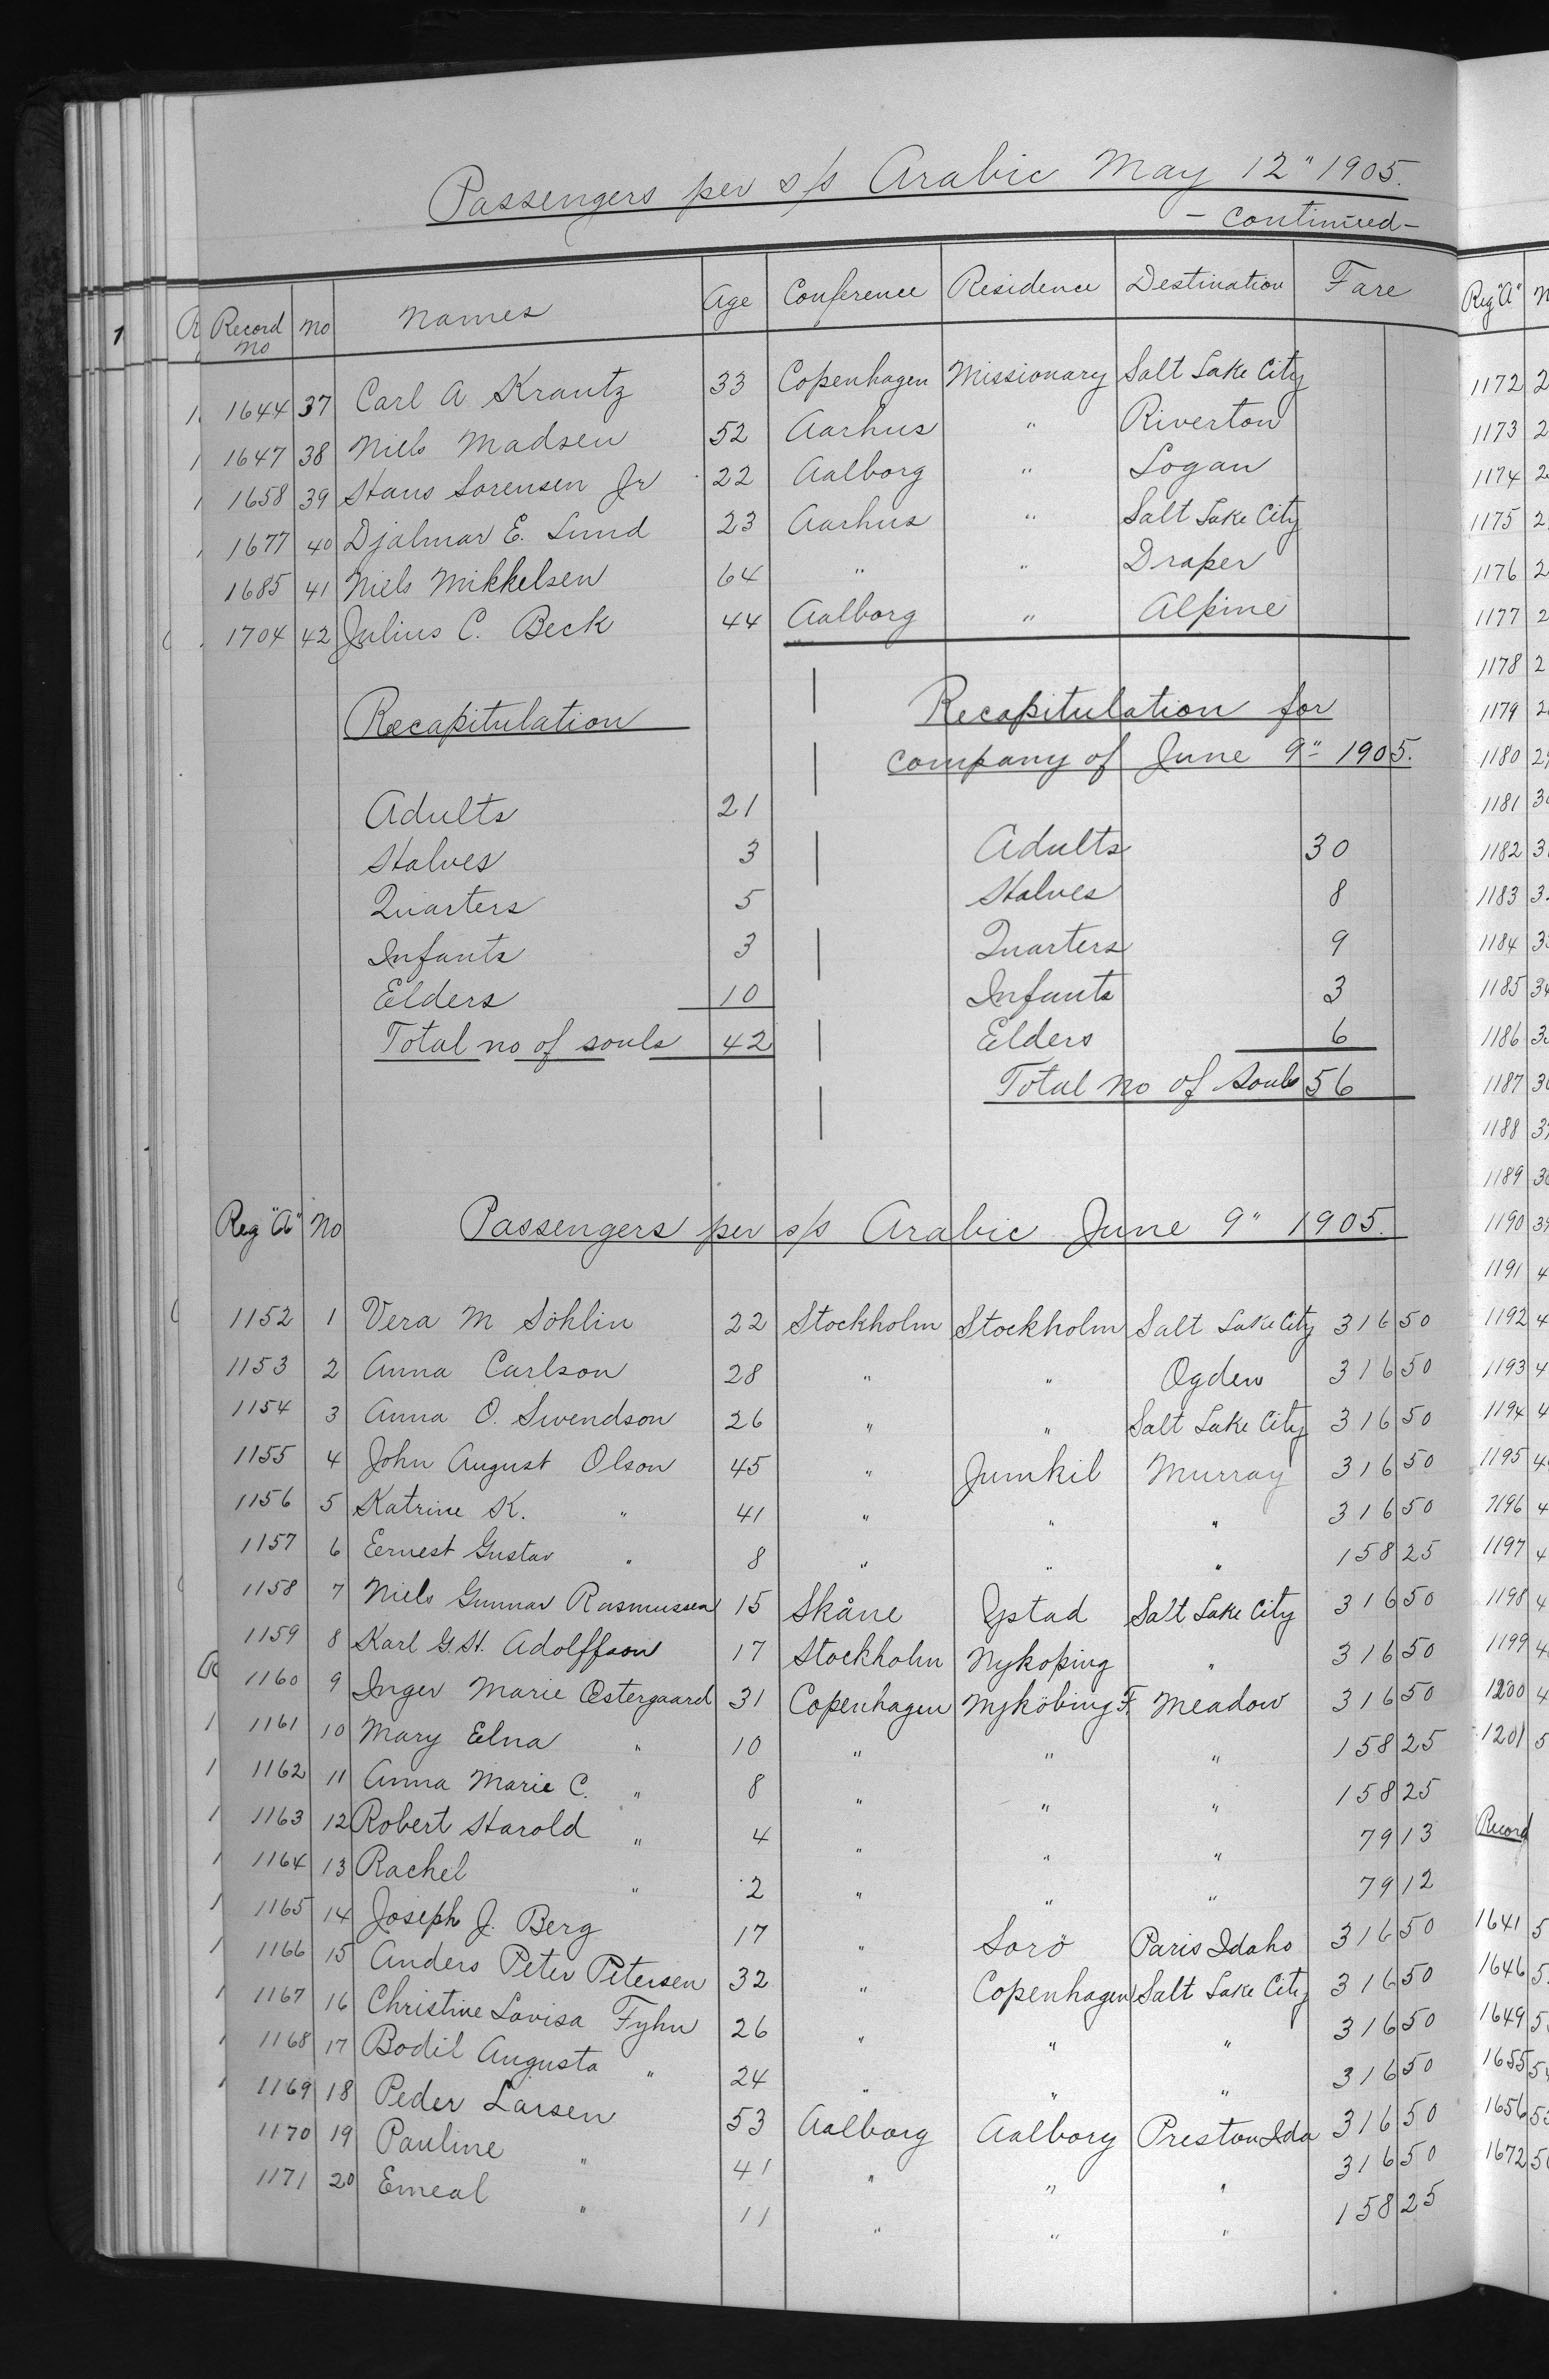 Passengers per s/s Arabic May 12" 1905.
- Continued -
Record No No Names Age Conference Residence Destination Fare
1644 37 Carl A Krantz 33 Copenhagen Missionary Salt Lake City
1647 38 Niels Madsen 52 Aarhus " Riverton
1658 39 Hans Sorensen Jr 22 Aalborg " Logan
1677 40 Djalmar E. Lund 23 Aarhus " Salt Lake City
1685 41 Niels Mikkelsen 64 " " Draper
1704 42 Julius C. Beck 44 Aalborg " Alpine
Recapitulation
Adults 21
Halves 3
Quarters 5
Infants 3
Elders 10
Total no of souls 42
Recapitulation for
company of June 9" 1905.
Adults 30
Halves 8
Quarters 9
Infants 3
Elders 6
Total no of souls 56
Reg "A" No Passengers per s/s Arabic June 9" 1905.
1152 1 Vera M Söhlin 22 Stockholm Stockholm Salt Lake City 316 50
1153 2 Anna Carlson 28 " " Ogden 316 50
1154 3 Anna O. Swendson 26 " " Salt Lake City 316 50
1155 4 John August Olson 45 " Jumkil Murray 316 50
1156 5 Katrine K. " 41 " " " 316 50
1157 6 Eernest Gustav " 8 " " " 158 25
1158 7 Niels Gunnar Rasmussen 15 Skåne Ystad Salt Lake City 316 50
1159 8 Karl G.H. Adolffson 17 Stockholm Nykoping " 316 50
1160 9 Inger Marie Østergaard 31 Copenhagen Nyköbing F. Meadow 316 50
1161 10 Mary Elna " 10 " " " 158 25
1162 11 Anna Marie C. " 8 " " " 158 25
1163 12 Robert Harold " 4 " " " 79 13
1164 13 Rachel " 2 " " " 79 12
1165 14 Joseph J. Berg 17 " Sorö Paris Idaho 316 50
1166 15 Anders Peter Petersen 32 " Copenhagen Salt Lake City 316 50
1167 16 Christine Lovisa Fyhn 26 " " " 316 50
1168 17 Bodil Augusta " 24 " " " 316 50
1169 18 Peder Larsen 53 Aalborg Aalborg Preston Ida 316 50
1170 19 Pauline " 41 " " " 316 50
1171 20 Emeal " 11 " " " 158 25
Reg "A"
1172
1173
1174
1175
1176
1177
1178
1179
1180
1181
1182
1183
1184
1185
1186
1187
1188
1189
1190
1191
1192
1193
1194
1195
1196
1197
1198
1199
1200
1201
Record
1641
1646
1649
1655
1656
1672